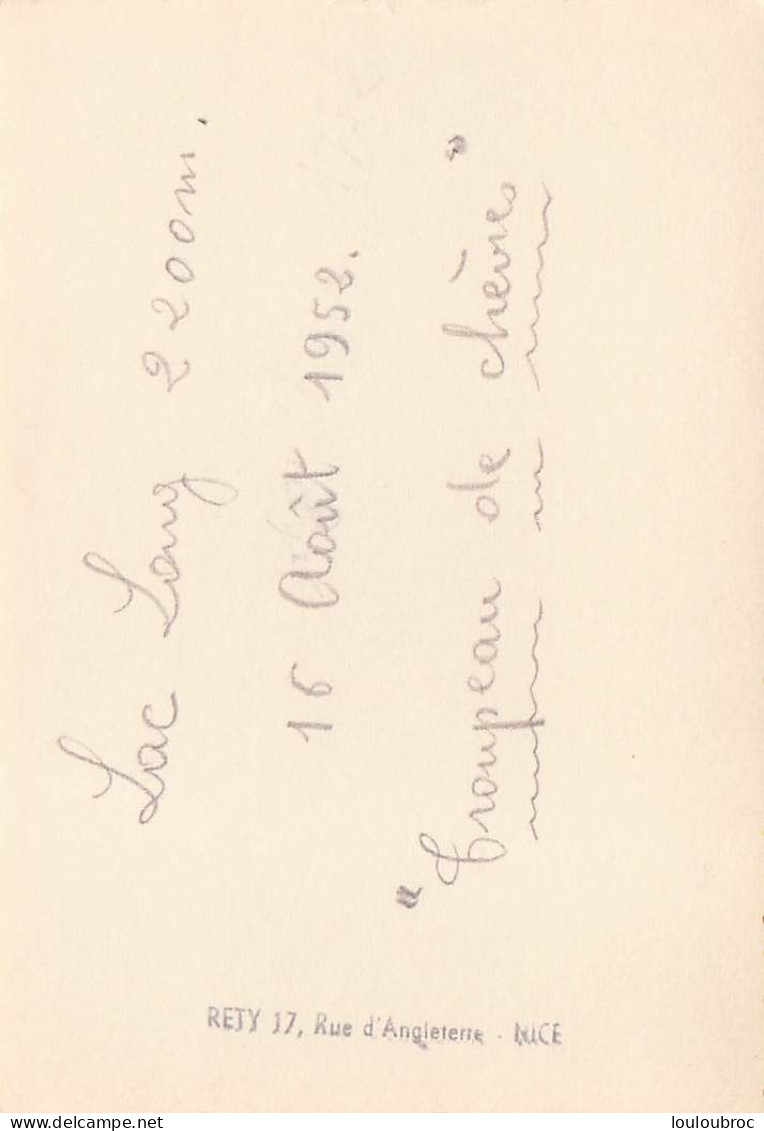 Lac Long 2200m.
16 Août 1952.
"Troupeau de chèvres"
RETY 17, Rue d'Angleterre - NICE
delcampe.net
louloubroc